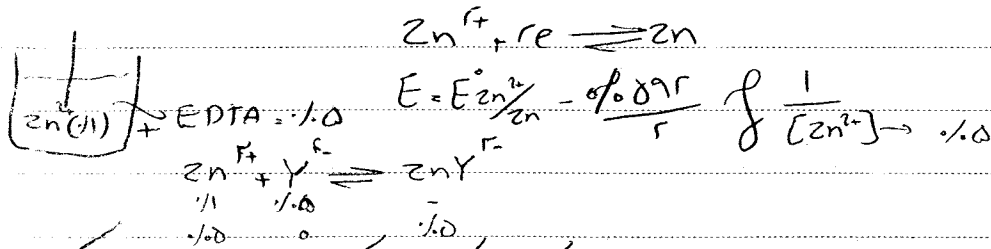 Zn²⁺ + ۲e ⇌ Zn
Zn (۰/۱) + EDTA = ۰/۰۵
E = E° Zn²⁺/Zn - ۰/۰۵۹۲/۲ log 1/[Zn²⁺] → ۰/۰۵
Zn²⁺ + Y⁴⁻ ⇌ ZnY²⁻
۰/۱ ۰/۰۵ -
۰/۰۵ ۰ ۰/۰۵